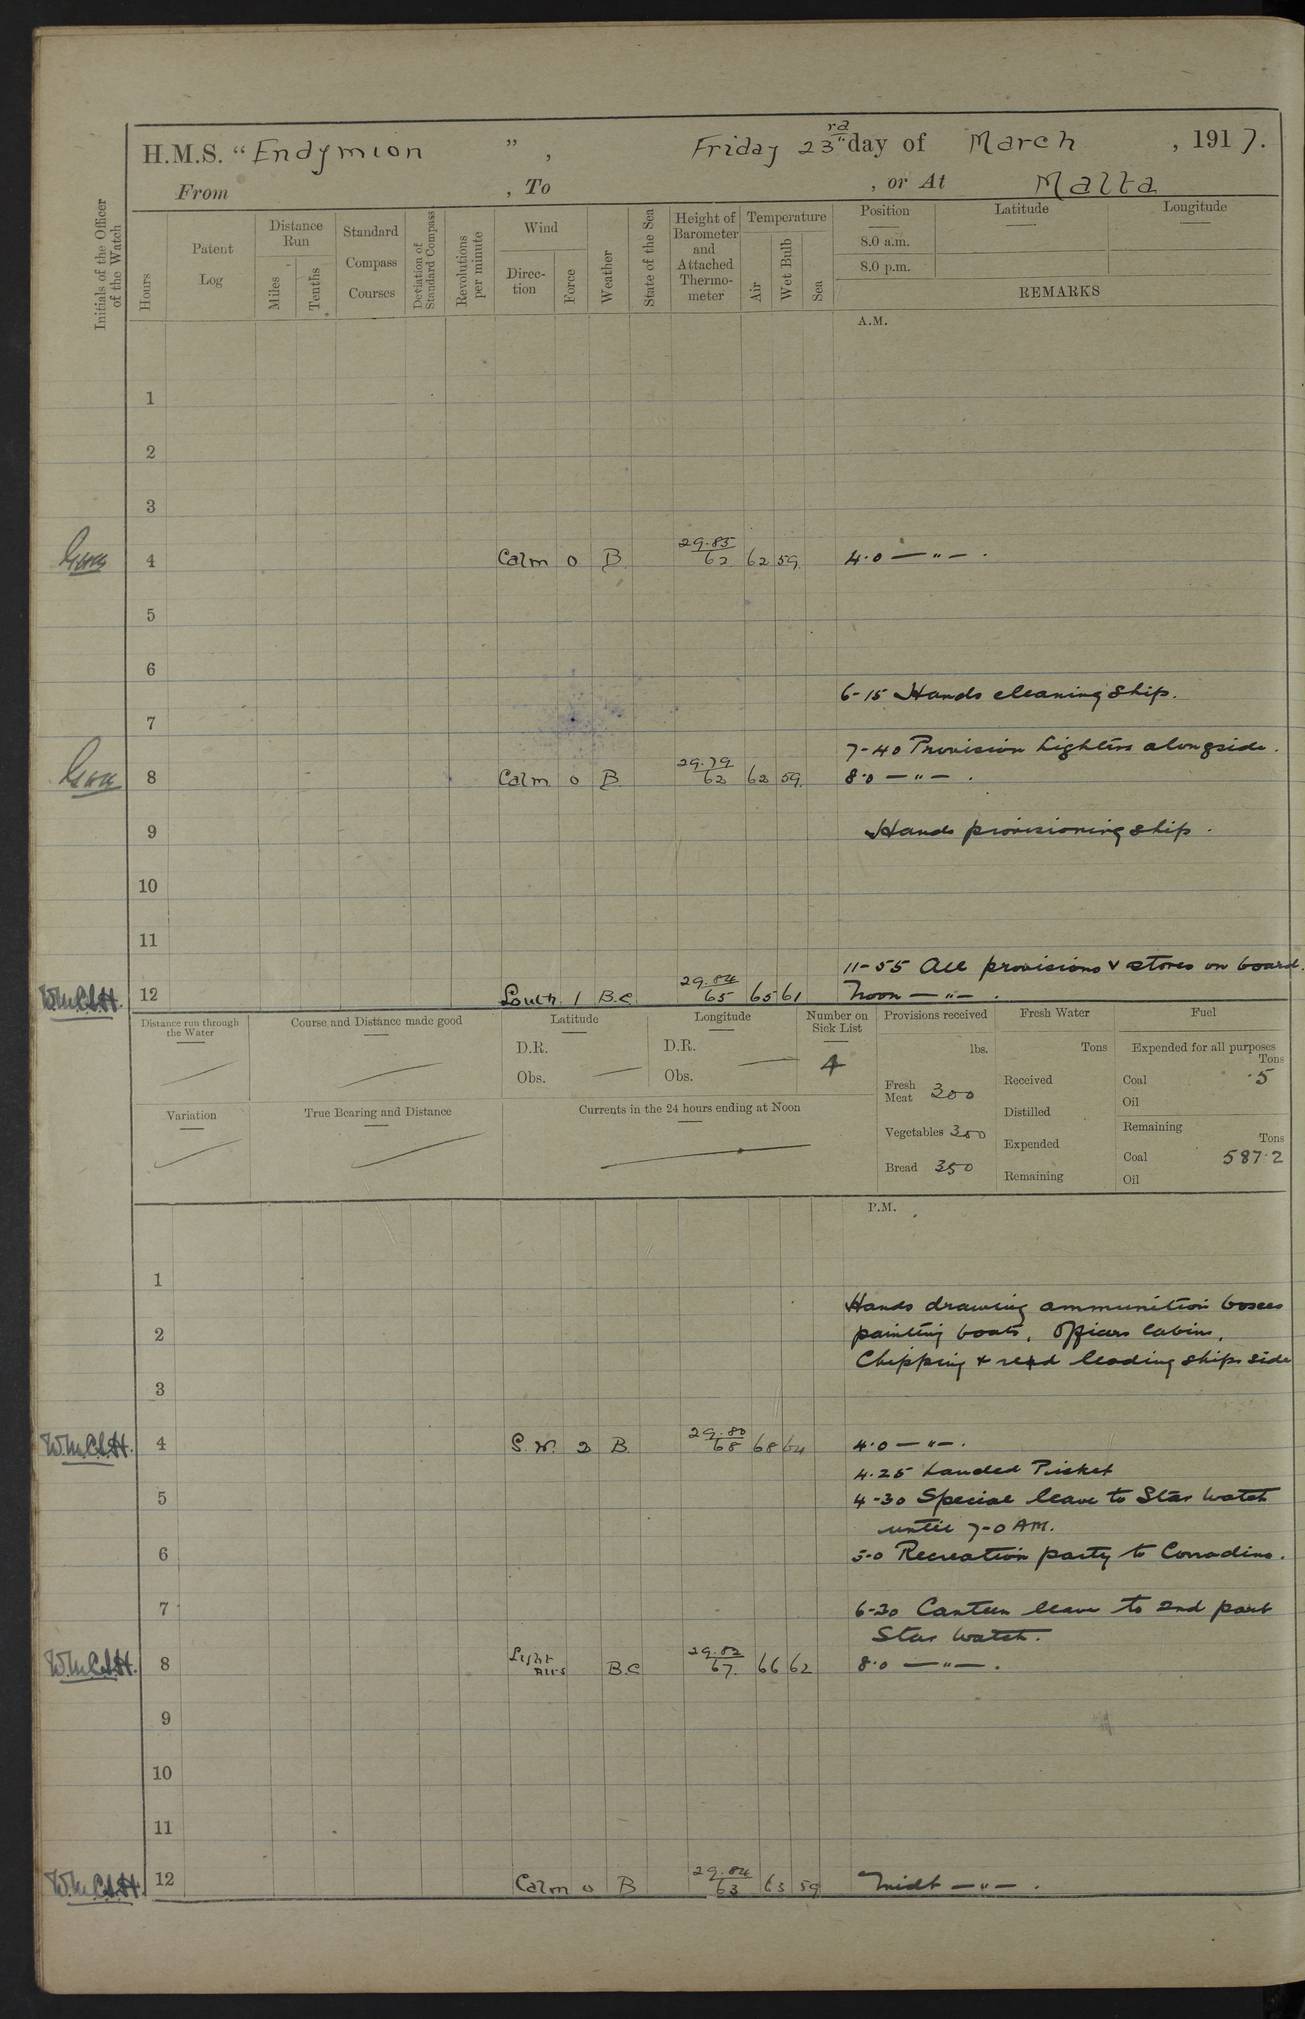 H.M.S. "Endymion", Friday 23rd day of March, 1917.
From , To , or At Malta
Initials of the Officer of the Watch
Hours
Patent Log
Distance Run
Miles
Tenths
Standard Compass Courses
Deviation of Standard Compass
Revolutions per minute
Wind
Direction
Force
Weather
State of the Sea
Height of Barometer and Attached Thermometer
Temperature
Air
Wet Bulb
Sea
Position
Latitude
Longitude
8.0 a.m.
8.0 p.m.
REMARKS
A.M.
1
2
3
4 Calm 0 B 29.85/62 62 59 4.0 — " — .
5
6
6-15 Hands cleaning ship.
7
7-40 Provision Lighters alongside.
8 Calm 0 B 29.79/62 62 59 8.0 — " — .
9 Hands provisioning ship.
10
11
11-55 All provisions & stores on board.
W.M.C.S.H. 12 South 1 B.C. 29.84/65 65 61 Noon — " — .
Distance run through the Water
Course and Distance made good
Latitude
D.R.
Obs.
Longitude
D.R.
Obs.
Number on Sick List
4
Provisions received
lbs.
Fresh Meat 300
Vegetables 350
Bread 350
Fresh Water
Tons
Received
Distilled
Expended
Remaining
Fuel
Expended for all purposes
Tons
Coal .5
Oil
Remaining
Tons
Coal 587.2
Oil
Variation
True Bearing and Distance
Currents in the 24 hours ending at Noon
P.M.
1
Hands drawing ammunition boxes
2 painting boats, Officers Cabins,
Chipping & red leading ships side
3
W.M.C.S.H. 4 S.W. 2 B. 29.80/68 68 64 4.0 — " — .
4.25 Landed Picket
5 4-30 Special leave to Star Watch
until 7-0 AM.
6 5-0 Recreation party to Corradino.
7 6-30 Canteen leave to 2nd part
Star Watch.
W.M.C.S.H. 8 Light Airs B.C 29.82/67 66 62 8.0 — " — .
9
10
11
W.M.C.S.H. 12 Calm 0 B 29.84/63 63 59 Midt — " — .